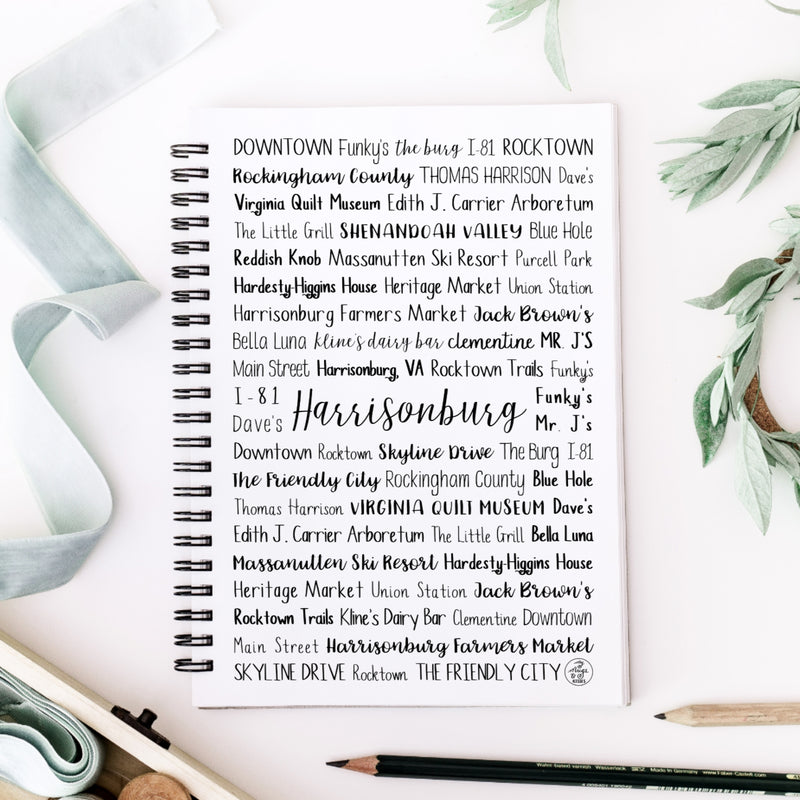 DOWNTOWN Funky's the burg I-81 ROCKTOWN
Rockingham County THOMAS HARRISON Dave's
Virginia Quilt Museum Edith J. Carrier Arboretum
The Little Grill SHENANDOAH VALLEY Blue Hole
Reddish Knob Massanutten Ski Resort Purcell Park
Hardesty-Higgins House Heritage Market Union Station
Harrisonburg Farmers Market Jack Brown's
Bella Luna kline's dairy bar clementine MR. J'S
Main Street Harrisonburg, VA Rocktown Trails Funky's
I-81 Funky's
Dave's Harrisonburg Mr. J's
Downtown Rocktown Skyline Drive The Burg I-81
The Friendly City Rockingham County Blue Hole
Thomas Harrison VIRGINIA QUILT MUSEUM Dave's
Edith J. Carrier Arboretum The Little Grill Bella Luna
Massanutten Ski Resort Hardesty-Higgins House
Heritage Market Union Station Jack Brown's
Rocktown Trails Kline's Dairy Bar Clementine Downtown
Main Street Harrisonburg Farmers Market
SKYLINE DRIVE Rocktown THE FRIENDLY CITY
Made in Germany www.Faber-Castell.com